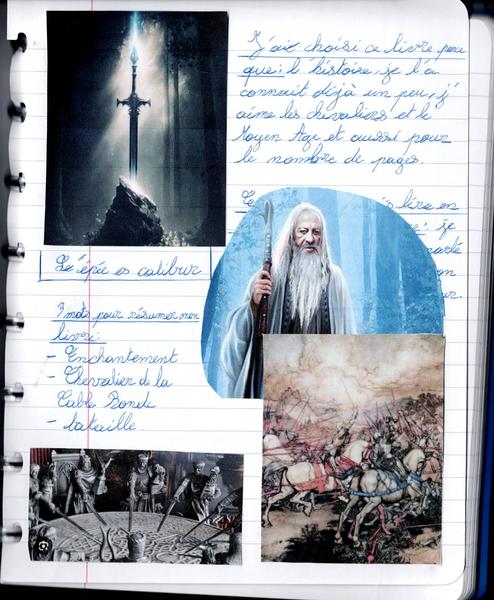 J'aie choisi ce livre parce
que: l' histoire, je l'a
connait déjà un peu, j'
aime les chevaliers et le
Moyen Age et aussi pour
le nombre de pages.
lire en
je
L'épée es calibur
3 mots pour résumer mon
livre:
- Enchantement
- Chevalier de la
Table Ronde
- bataille